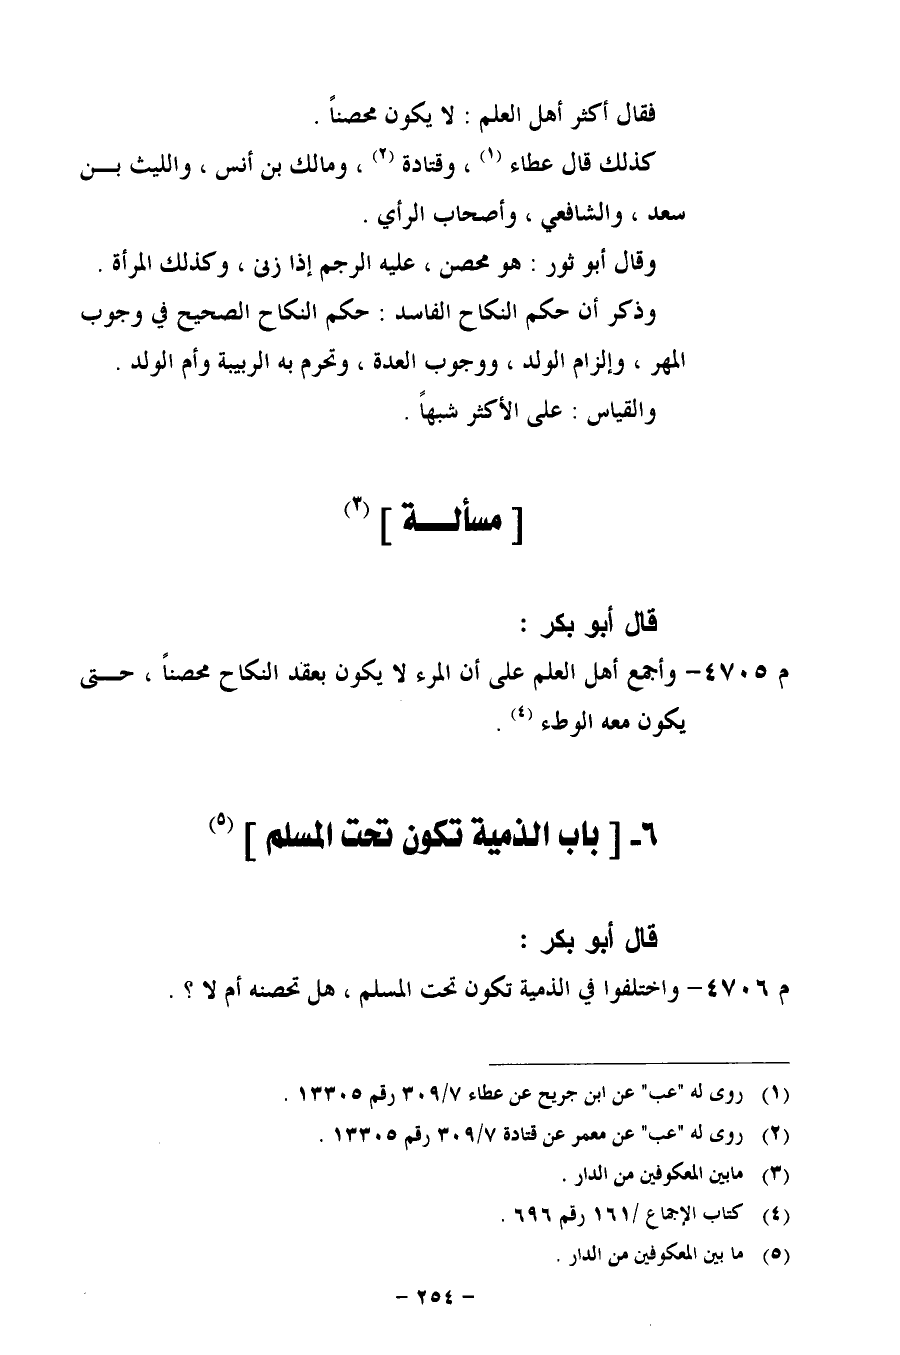 فقال أكثر أهل العلم : لا يكون محصناً .
كذلك قال عطاء (١) ، وقتادة (٢) ، ومالك بن أنس ، والليث بـــن
سعد ، والشافعي ، وأصحاب الرأي .
وقال أبو ثور : هو محصن ، عليه الرجم إذا زنى ، وكذلك المرأة .
وذكر أن حكم النكاح الفاسد : حكم النكاح الصحيح في وجوب
المهر ، وإلزام الولد ، ووجوب العدة ، وتحرم به الربيبة وأم الولد .
والقياس : على الأكثر شبهاً .
[ مسألـــة ] (٣)
قال أبو بكر :
م ٤٧٠٥- وأجمع أهل العلم على أن المرء لا يكون بعقد النكاح محصناً ، حـــتى
يكون معه الوطء (٤) .
٦ـ [ باب الذمية تكون تحت المسلم ] (٥)
قال أبو بكر :
م ٤٧٠٦- واختلفوا في الذمية تكون تحت المسلم ، هل تحصنه أم لا ؟ .
(١) روى له "عب" عن ابن جريج عن عطاء ٣٠٩/٧ رقم ١٣٣٠٥ .
(٢) روى له "عب" عن معمر عن قتادة ٣٠٩/٧ رقم ١٣٣٠٥ .
(٣) مابين المعكوفين من الدار .
(٤) كتاب الإجماع /١٦١ رقم ٦٩٦ .
(٥) ما بين المعكوفين من الدار .
- ٢٥٤ -